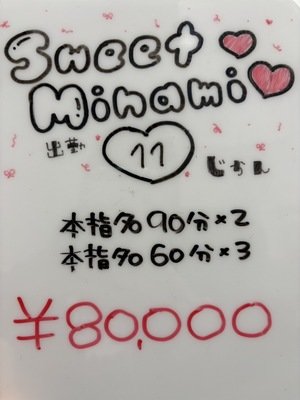 Sweet
Minami
出勤 11 じかん
本指名90分×2
本指名60分×3
¥80,000